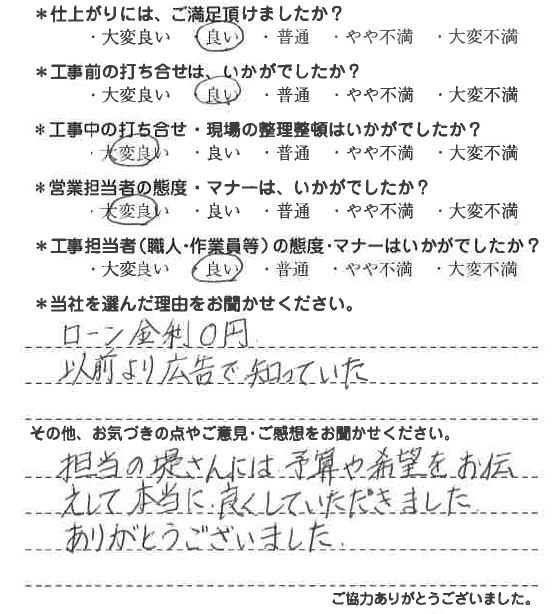 ＊仕上がりには、ご満足頂けましたか？
・大変良い ・良い ・普通 ・やや不満 ・大変不満
＊工事前の打ち合せは、いかがでしたか？
・大変良い ・良い ・普通 ・やや不満 ・大変不満
＊工事中の打ち合せ・現場の整理整頓はいかがでしたか？
・大変良い ・良い ・普通 ・やや不満 ・大変不満
＊営業担当者の態度・マナーは、いかがでしたか？
・大変良い ・良い ・普通 ・やや不満 ・大変不満
＊工事担当者(職人・作業員等)の態度・マナーはいかがでしたか？
・大変良い ・良い ・普通 ・やや不満 ・大変不満
＊当社を選んだ理由をお聞かせください。
ローン金利０円
以前より広告で知っていた
その他、お気づきの点やご意見・ご感想をお聞かせください。
担当の堤さんには予算や希望をお伝
えして本当に良くしていただきました
ありがとうございました.
ご協力ありがとうございました。